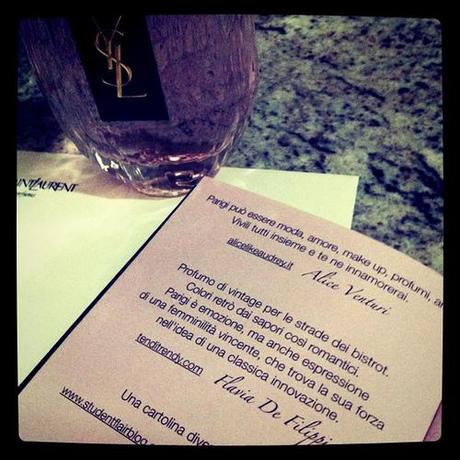 YSL
SAINT LAURENT
Parigi può essere moda, amore, make up, profumi,
Vivili tutti insieme e te ne innamorerai.
alicelikeaudrey.it
Alice Venturi
Profumo di vintage per le strade dei bistrot.
Colori retrò dai sapori così romantici.
Parigi è emozione, ma anche espressione
di una femminilità vincente, che trova la sua forza
nell'idea di una classica innovazione.
tenditrendy.com
Flavia De Filippi
Una cartolina
www.studentflairblog